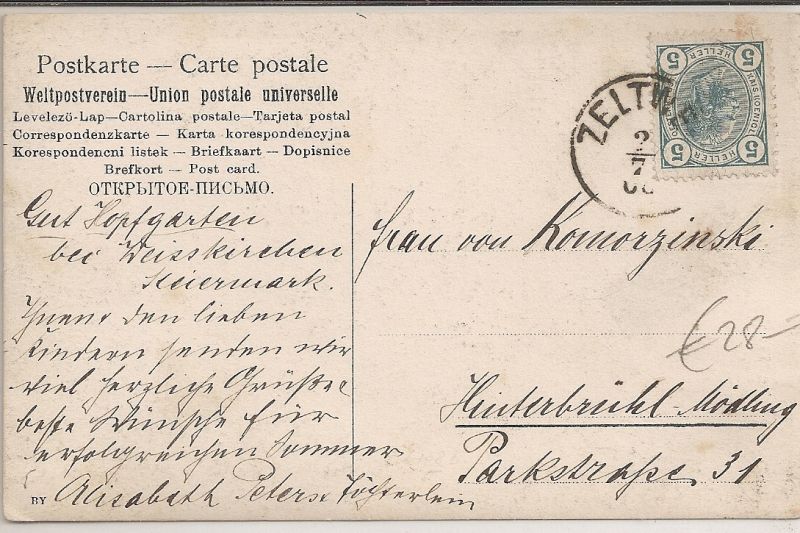 Postkarte — Carte postale
Weltpostverein—Union postale universelle
Levelezö-Lap—Cartolina postale—Tarjeta postal
Correspondenzkarte — Karta korespondencyjna
Korespondencni listek — Briefkaart — Dopisnice
Brefkort — Post card.
ОТКРЫТОЕ-ПИСЬМО.
Gut Hopfgarten
bei Weisskirchen
Steiermark.
Ihnen den lieben
Kindern senden wir
viel herzliche Grüße
beste Wünsche für
erfolgreichen Sommer
Elisabeth Peters Töchterlein
BY
ZELTWEG
2
7
5 HELLER 5
5 HELLER 5
Frau von Komorzinski
Hinterbrühl-Mödling
Parkstraße 31
€28-